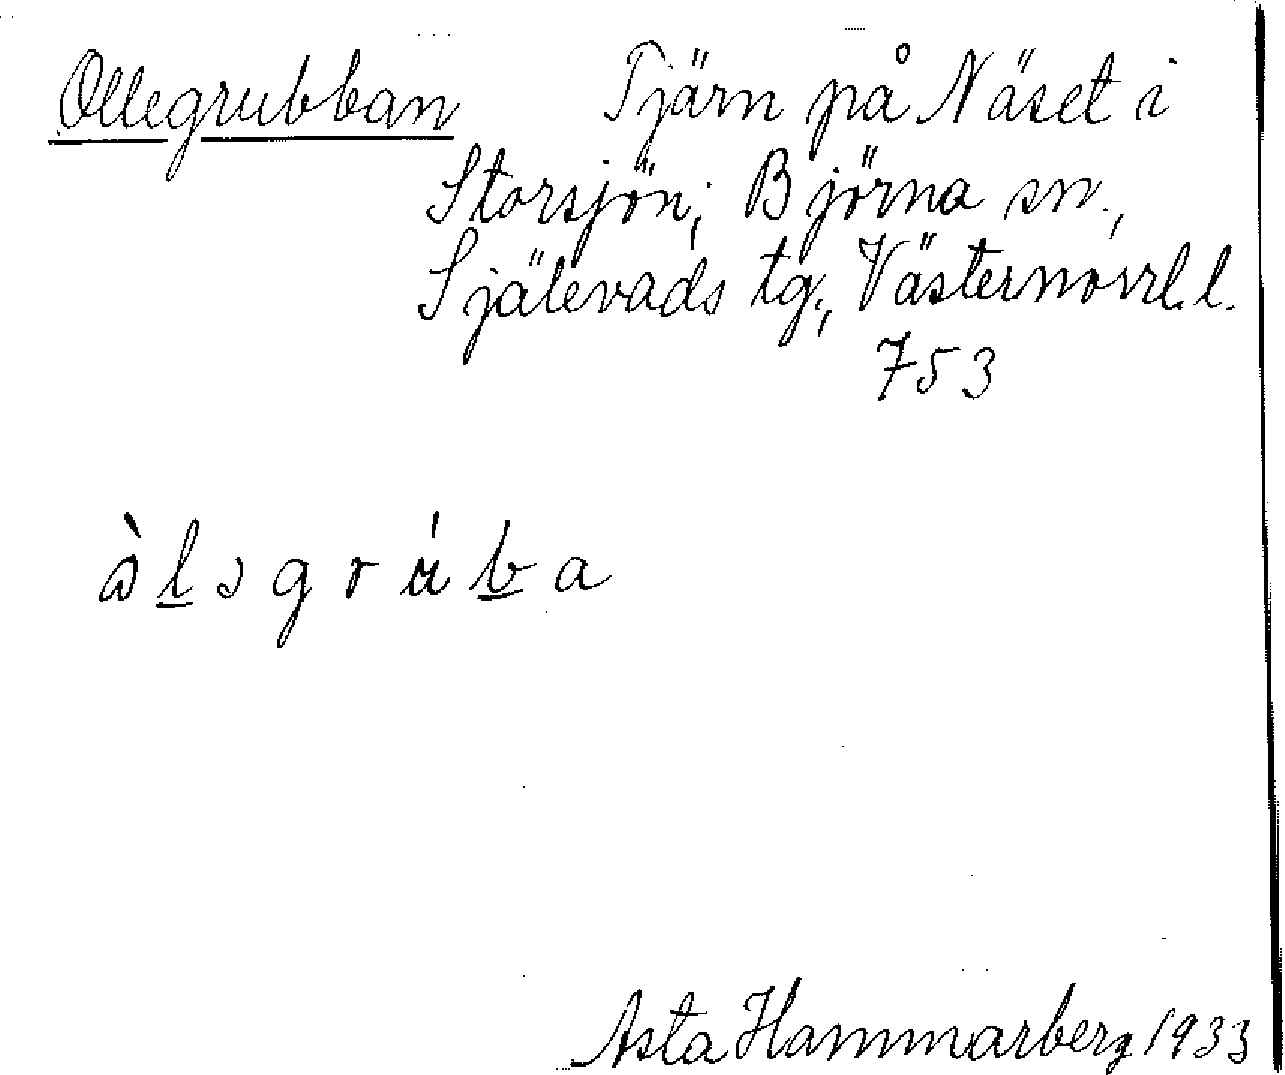 Ollegrubban Tjärn på Näset i
Storsjön; Björna sn.,
Själevads tg., Västernorrl. l.
753
Asta Hammarberg 1933